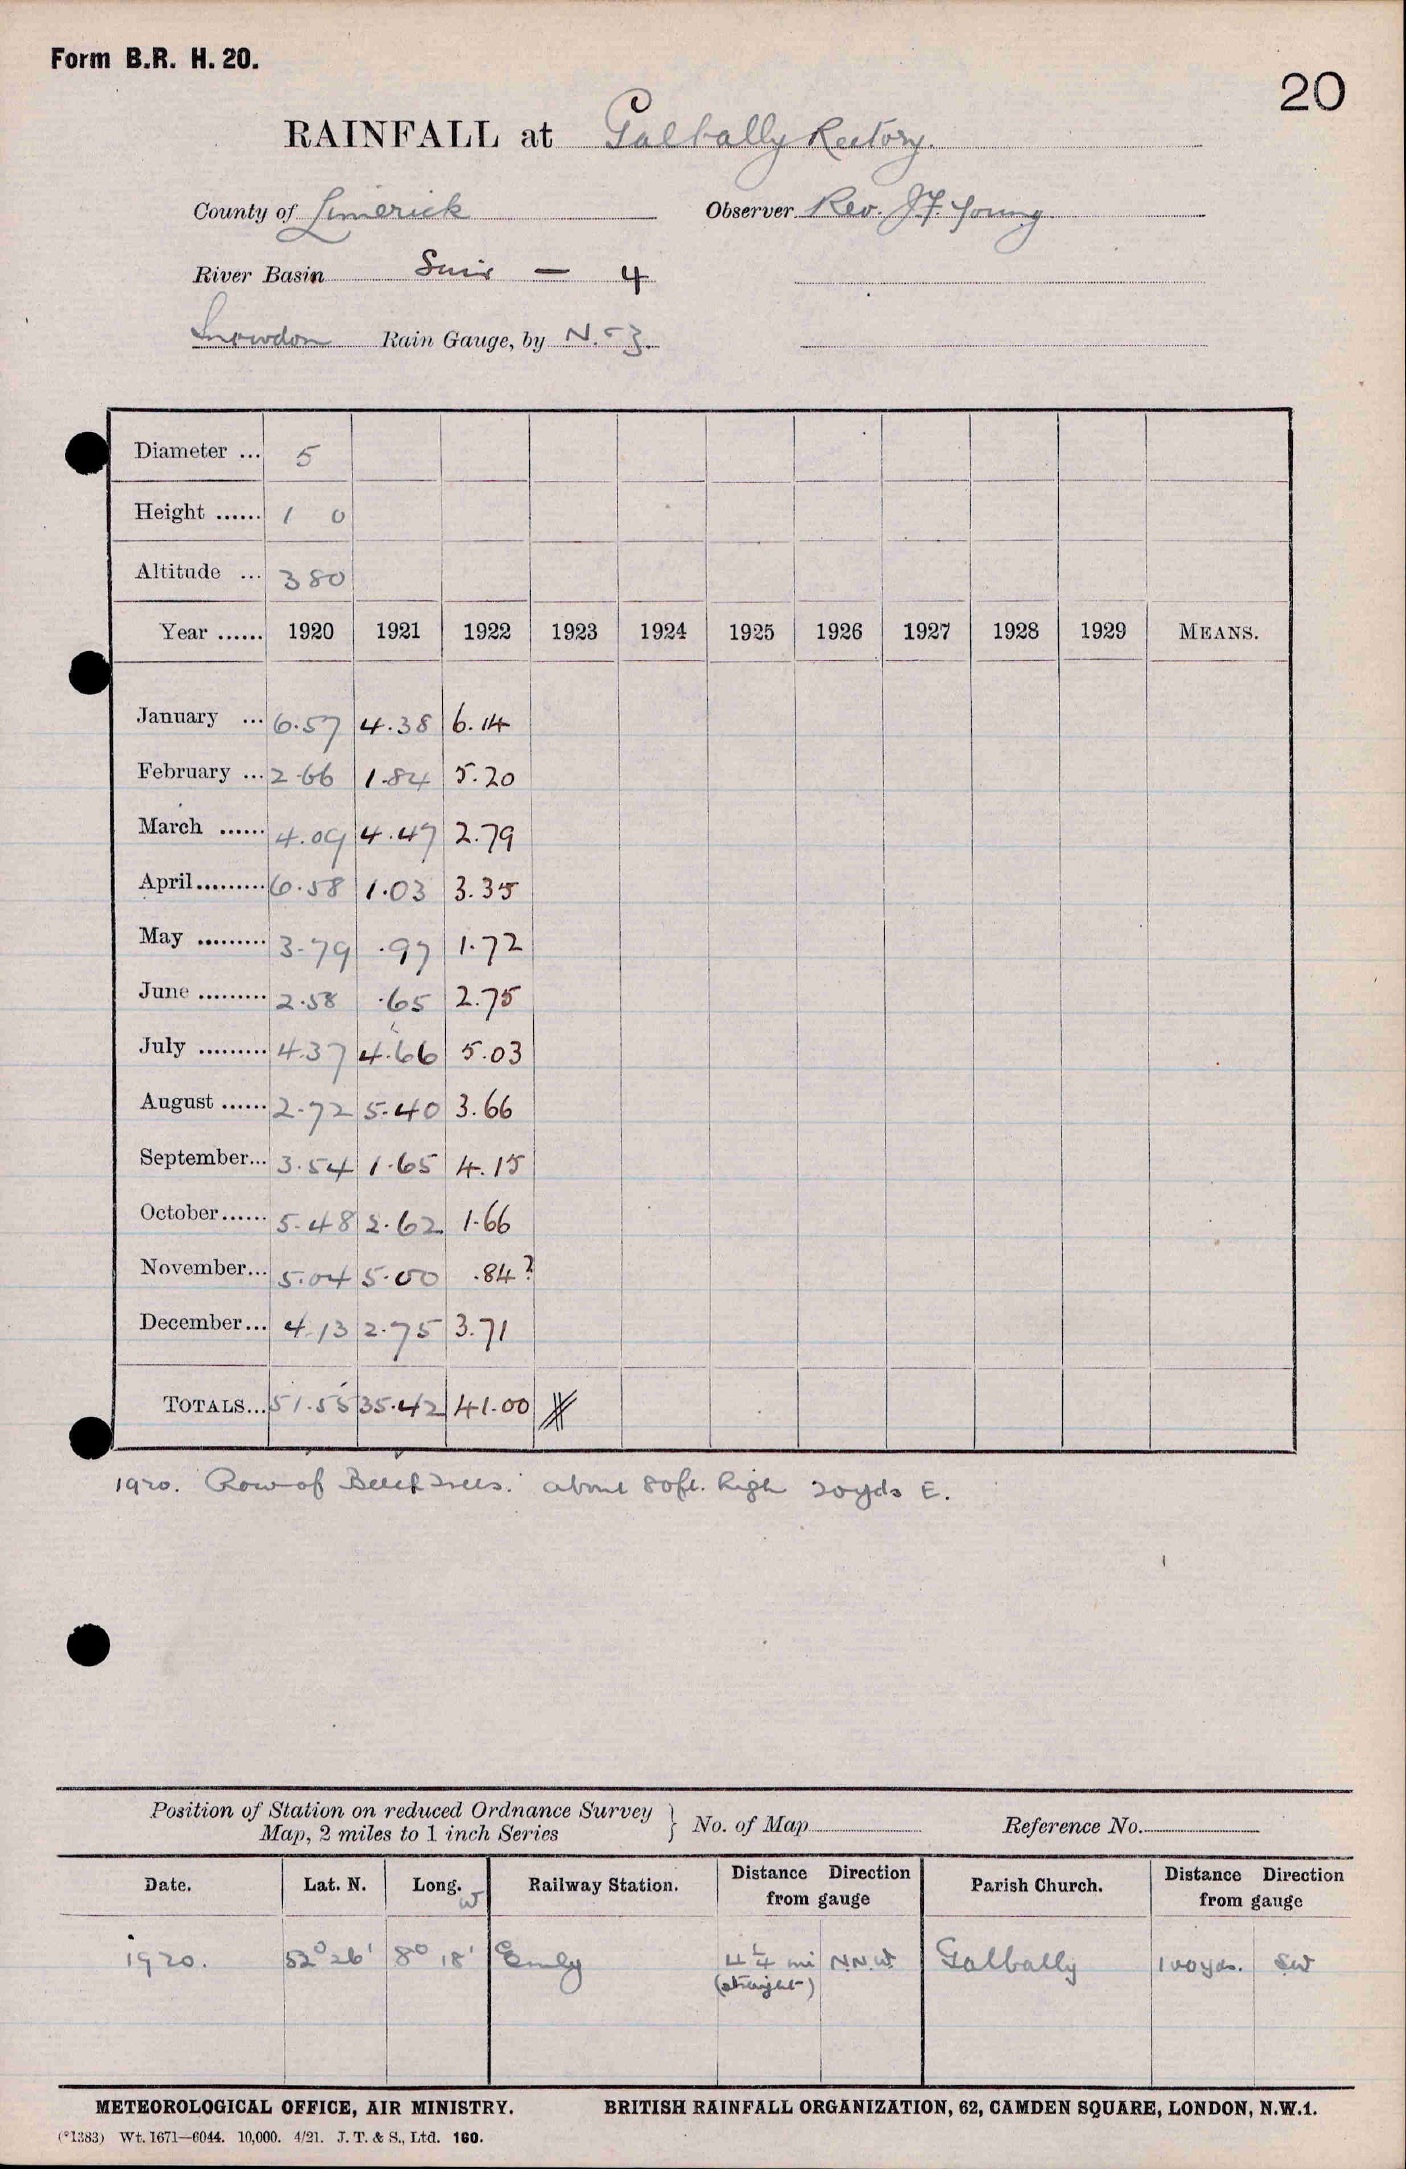 Form B.R. H. 20.
20
RAINFALL at Galbally Rectory.
County of Limerick Observer Rev. J.F. Young
River Basin Suir — 4
Snowdon Rain Gauge, by N. & Z.
Diameter ... 5
Height ...... 1 0
Altitude ... 380
Year ...... 1920 1921 1922 1923 1924 1925 1926 1927 1928 1929 MEANS.
January ... 6.57 4.38 6.14
February ... 2.66 1.84 5.20
March ...... 4.09 4.47 2.79
April......... 6.58 1.03 3.35
May ......... 3.79 .97 1.72
June ......... 2.58 .65 2.75
July ......... 4.37 4.66 5.03
August ...... 2.72 5.40 3.66
September... 3.54 1.65 4.15
October...... 5.48 2.62 1.66
November... 5.04 5.00 .84?
December... 4.13 2.75 3.71
TOTALS... 51.55 35.42 41.00
1920. Row of Beech trees. about 80ft. high 20yds E.
Position of Station on reduced Ordnance Survey
Map, 2 miles to 1 inch Series } No. of Map Reference No.
Date. Lat. N. Long. W Railway Station. Distance Direction from gauge Parish Church. Distance Direction from gauge
1920. 52° 26' 8° 18' Emly 4¼ mi N.N.W. Galbally 100yds. SW
(straight)
METEOROLOGICAL OFFICE, AIR MINISTRY. BRITISH RAINFALL ORGANIZATION, 62, CAMDEN SQUARE, LONDON, N.W.1.
(*1383) Wt. 1671—6044. 10,000. 4/21. J. T. & S., Ltd. 160.